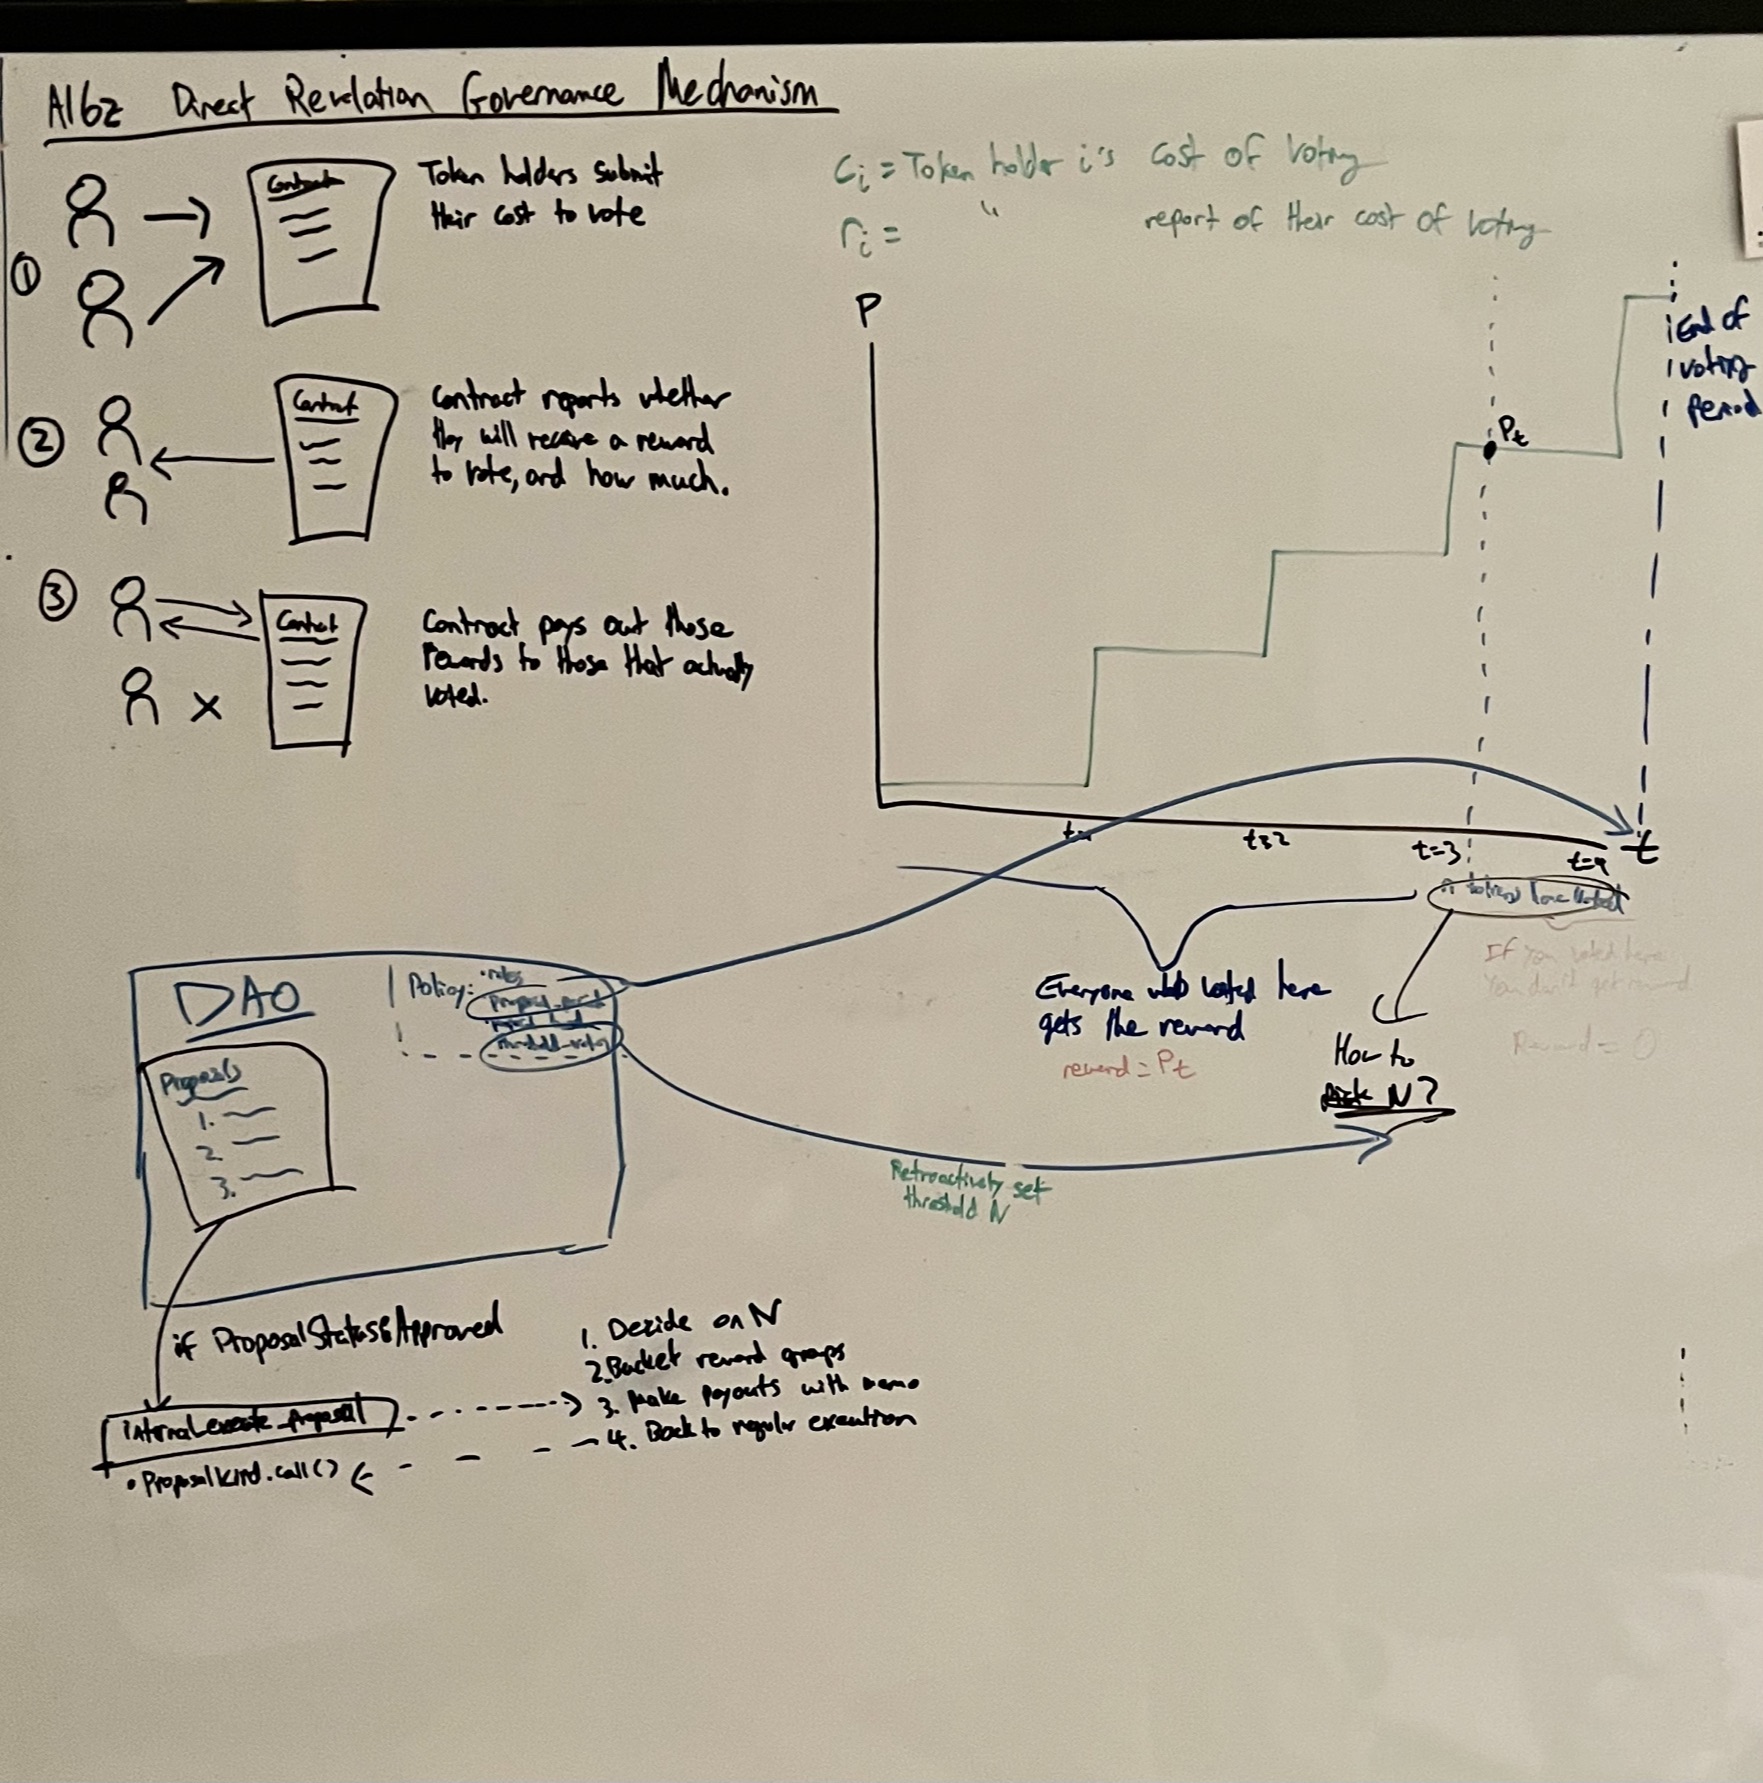 A16z Direct Revelation Governance Mechanism
①
Contract
Token holders submit
their cost to vote
②
Contract
Contract reports whether
they will receive a reward
to vote, and how much.
③
Contract
Contract pays out those
rewards to those that actually
voted.
Ci = Token holder i's cost of voting
ri = " report of their cost of voting
P
Pt
End of
voting
Period
t=2
t=3
t=4
t
n tokens have voted
If you voted here
you don't get reward
Reward = 0
Everyone who voted here
gets the reward
reward = Pt
How to
pick N?
Retroactively set
threshold N
DAO
Policy:
Proposals
1.
2.
3.
if ProposalStatus::Approved
internal_execute_proposal
• ProposalKind.call()
1. Decide on N
2. Bucket reward groups
3. Make payouts with memo
4. Back to regular execution